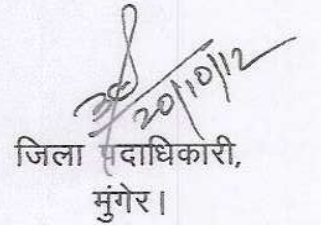 20/10/12
जिला पदाधिकारी,
मुंगेर।